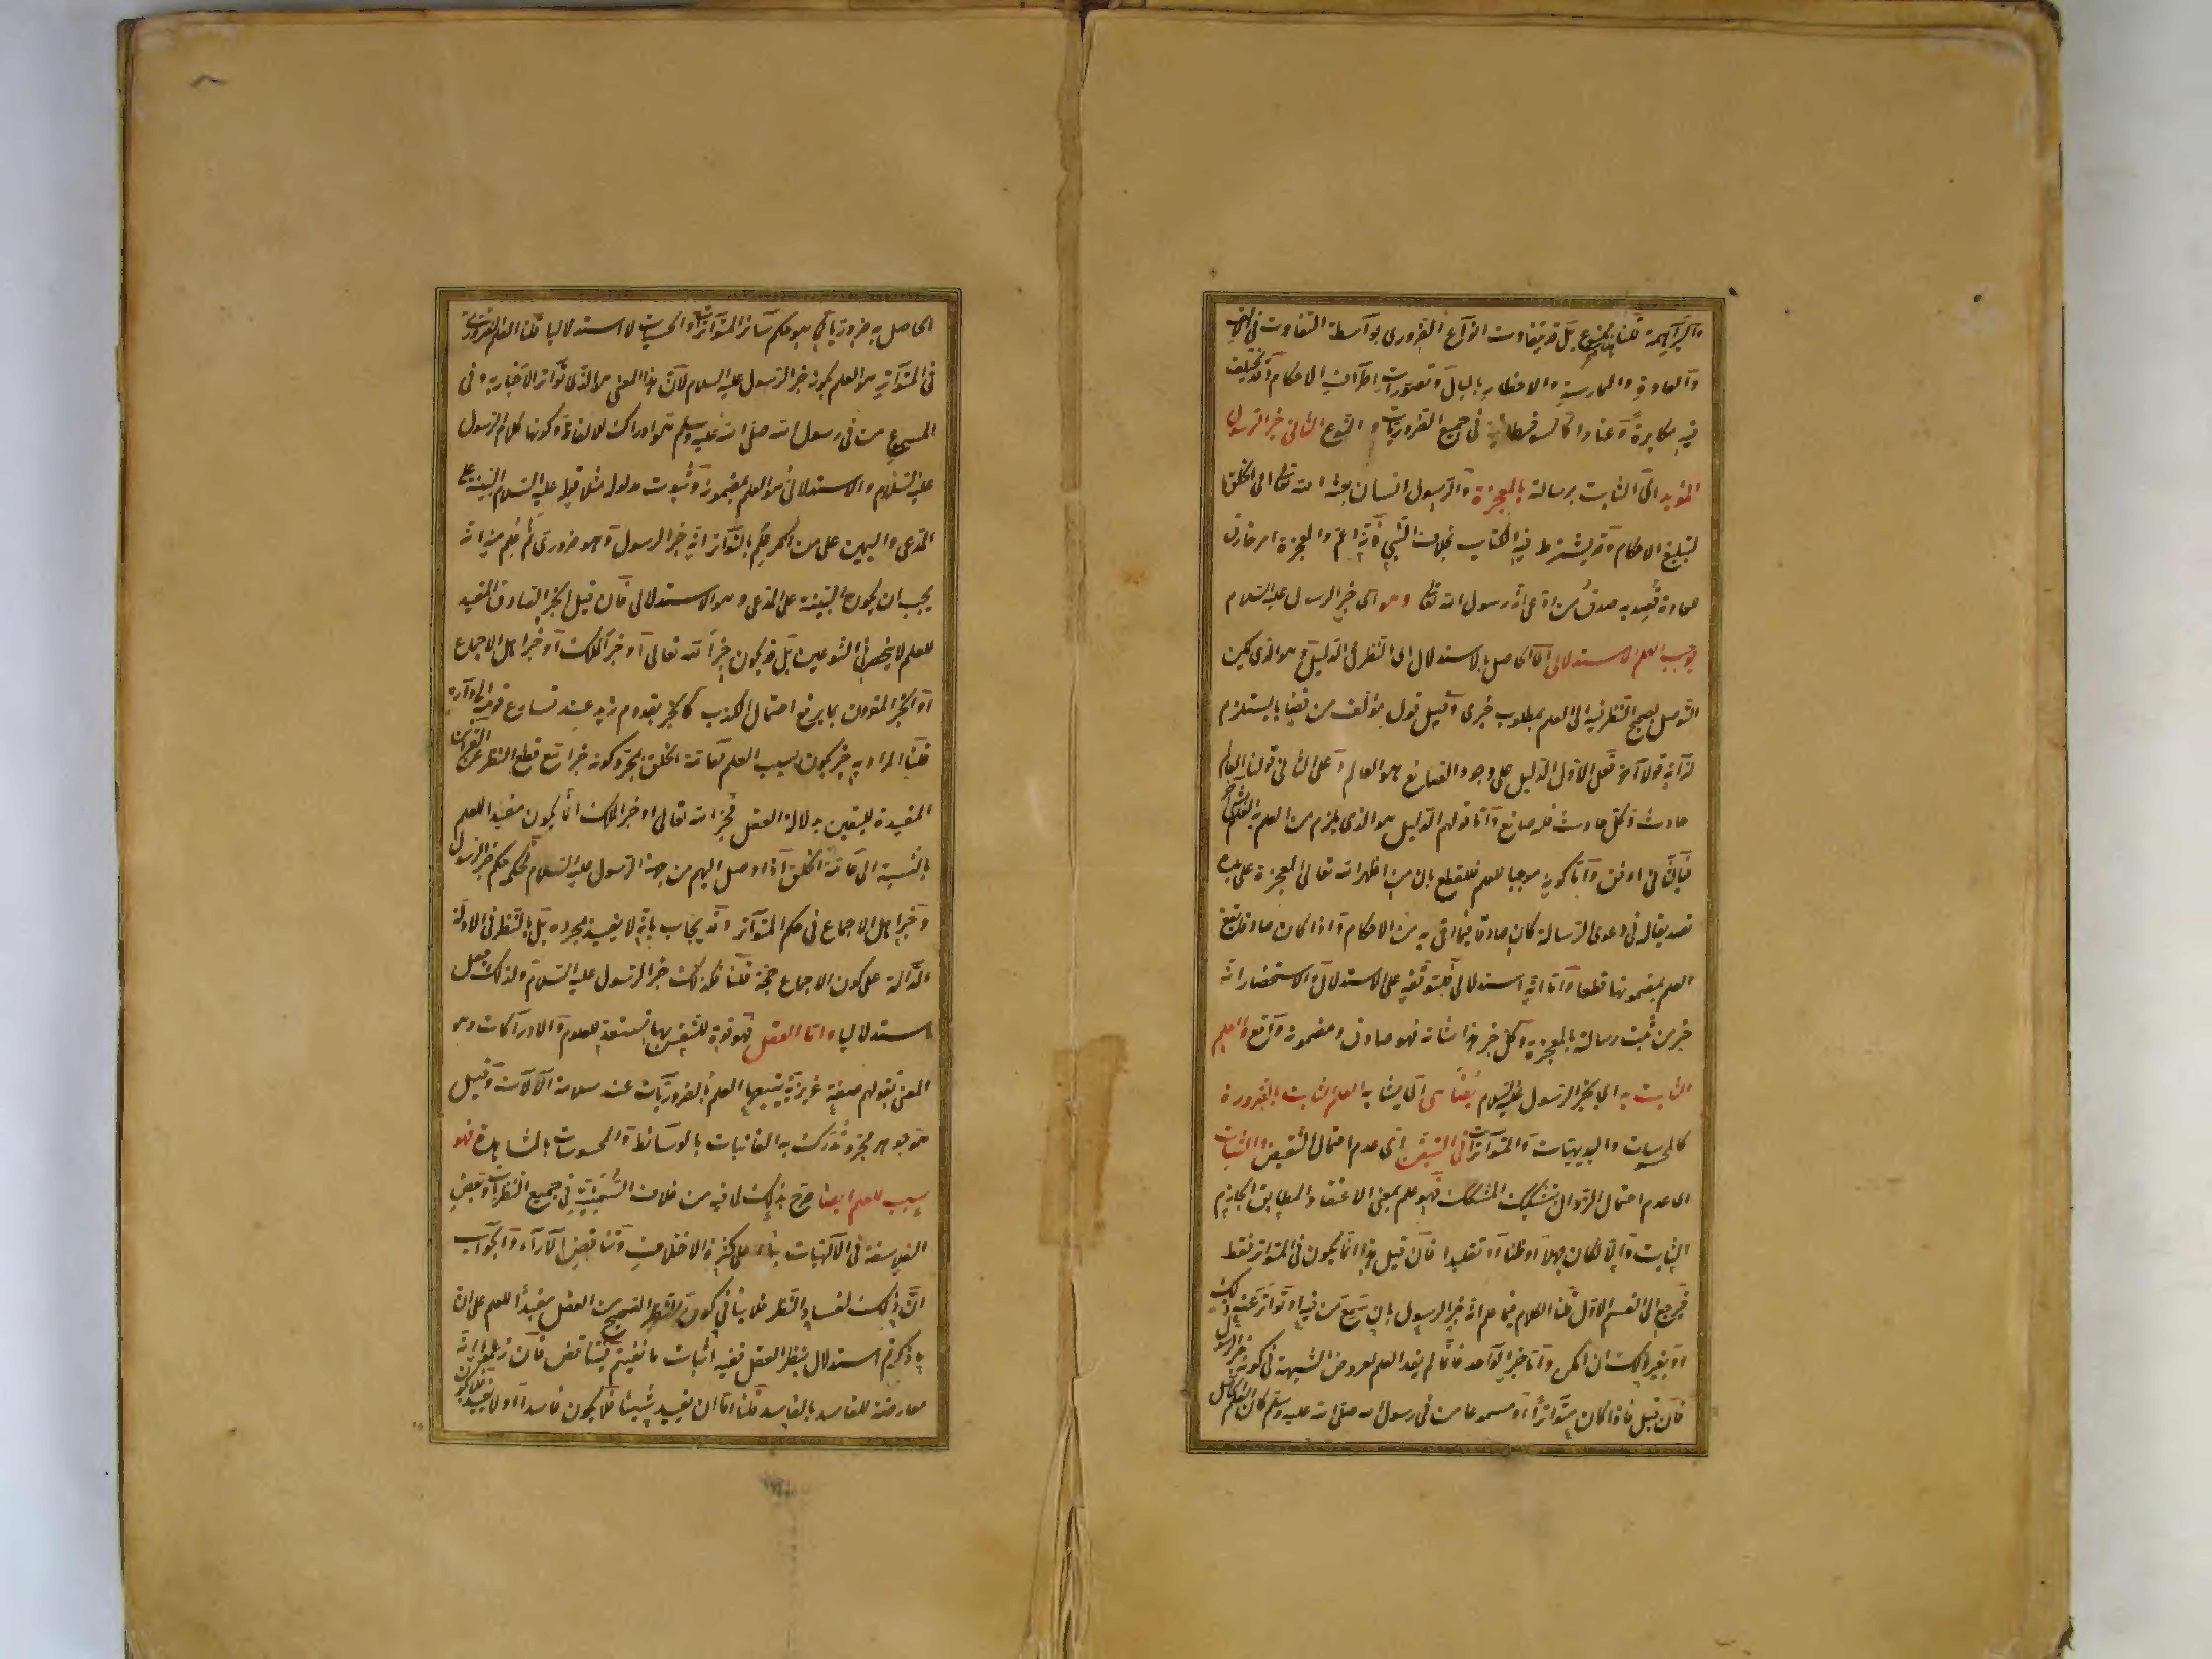 والبراهمة قلنا ممنوع بل قد يتفاوت انواع الضرورى بواسطة التفاوت فى الالف
والعادة والممارسة والاخطار بالبال وتصورات اطراف الاحكام وقد يختلف
فيه مكابرة وعنادا كالسوفسطائية فى جميع الضروريات والنوع الثانى خبر الرسول
المؤيد اى الثابت رسالته بالمعجزة والرسول انسان بعثه الله تعالى الى الخلق
لتبليغ الاحكام وقد يشترط فيه الكتاب بخلاف النبى فانه اعم والمعجزة امر خارق
للعادة قصد به صدق من ادعى انه رسول الله تعالى وهو اى خبر الرسول عليه السلام
يوجب العلم الاستدلالى اى الحاصل بالاستدلال اى النظر فى الدليل وهو الذى يمكن
التوصل بصحيح النظر فيه الى العلم بمطلوب خبرى وقيل قول مؤلف من قضايا يستلزم
لذاته قولا آخر فعلى الاول الدليل على وجود الصانع هو العالم وعلى الثانى قولنا العالم
حادث وكل حادث فله صانع واما قولهم الدليل هو الذى يلزم من العلم به العلم بشئ آخر
فبالثانى اوفق واما كونه موجبا للعلم فللقطع بان من اظهر الله تعالى المعجزة على يده
تصديقا له فى دعوى الرسالة كان صادقا فيما اتى به من الاحكام واذا كان صادقا يقع
العلم بمضمونها قطعا واما انه استدلالى فلتوقفه على الاستدلال والاستحضار انه
خبر من ثبت رسالته بالمعجزة وكل خبر هذا شانه فهو صادق ومضمونه واقع والعلم
الثابت به اى بخبر الرسول عليه السلام يضاهى اى يشابه العلم الثابت بالضرورة
كالمحسوسات والبديهيات والمتواترات فى التيقن اى عدم احتمال النقيض والثبات
اى عدم احتمال الزوال بتشكيك المشكك فهو علم بمعنى الاعتقاد المطابق الجازم
الثابت والا لكان جهلا او ظنا او تقليدا فان قيل هذا انما يكون فى المتواتر فقط
فيرجع الى القسم الاول قلنا الكلام فيما علم انه خبر الرسول بان سمع من فيه او تواتر عنه ذلك
او بغير ذلك ان امكن واما خبر الواحد فانما لم يفد العلم لعروض الشبهة فى كونه خبر الرسول
فان قيل فاذا كان متواترا او مسموعا من فى رسول الله صلى الله عليه وسلم كان العلم الحاصل
الحاصل به ضروريا كما هو حكم سائر المتواترات والحسيات لا استدلاليا قلنا العلم الضرورى
فى المتواتر هو العلم بكونه خبر الرسول عليه السلام لان هذا المعنى هو الذى تواتر الاخبار به وفى
المسموع من فى رسول الله صلى الله عليه وسلم هو ادراك الالفاظ وكونها كلام الرسول
عليه السلام والاستدلالى هو العلم بمضمونه وثبوت مدلوله مثلا قوله عليه السلام البينة على
المدعى واليمين على من انكر علم بالتواتر انه خبر الرسول وهو ضرورى ثم علم منه انه
يجب ان يكون البينة على المدعى وهو الاستدلالى فان قيل الخبر الصادق المفيد
للعلم لا ينحصر فى النوعين بل قد يكون خبر الله تعالى او خبر الملك او خبر اهل الاجماع
او الخبر المقرون بما يرفع احتمال الكذب كالخبر بقدوم زيد عند تسارع قومه الى داره
قلنا المراد به خبر يكون سبب العلم لعامة الخلق بمجرد كونه خبرا مع قطع النظر عن القرائن
المفيدة لليقين بدلالة العقل فخبر الله تعالى او خبر الملك انما يكون مفيدا للعلم
بالنسبة الى عامة الخلق اذا وصل اليهم من جهة الرسول عليه السلام فحكمه حكم خبر الرسول
وخبر اهل الاجماع فى حكم المتواتر وقد يجاب بانه لا يفيد بمجرده بل بالنظر فى الادلة
الدالة على كون الاجماع حجة قلنا فكذلك خبر الرسول عليه السلام ولذلك جعل
استدلاليا واما العقل فهو قوة للنفس بها تستعد للعلوم والادراكات وهو
المعنى بقولهم صفة غريزية يتبعها العلم بالضروريات عند سلامة الآلات وقيل
هو جوهر مجرد تدرك به الغائبات بالوسائط والمحسوسات بالمشاهدة فهو
سبب للعلم ايضا صرح بذلك لما فيه من خلاف السمنية فى جميع النظريات وبعض
الفلاسفة فى الآلهيات بناء على كثرة الاختلاف وتناقض الآراء والجواب
ان ذلك لفساد النظر فلا ينافى كون النظر الصحيح من العقل مفيدا للعلم على ان
ما ذكرتم استدلال بنظر العقل ففيه اثبات ما نفيتم فيتناقض فان زعموا انه
معارضة للفاسد بالفاسد قلنا اما ان يفيد شيئا فلا يكون فاسدا او لا يفيد فلا يكون